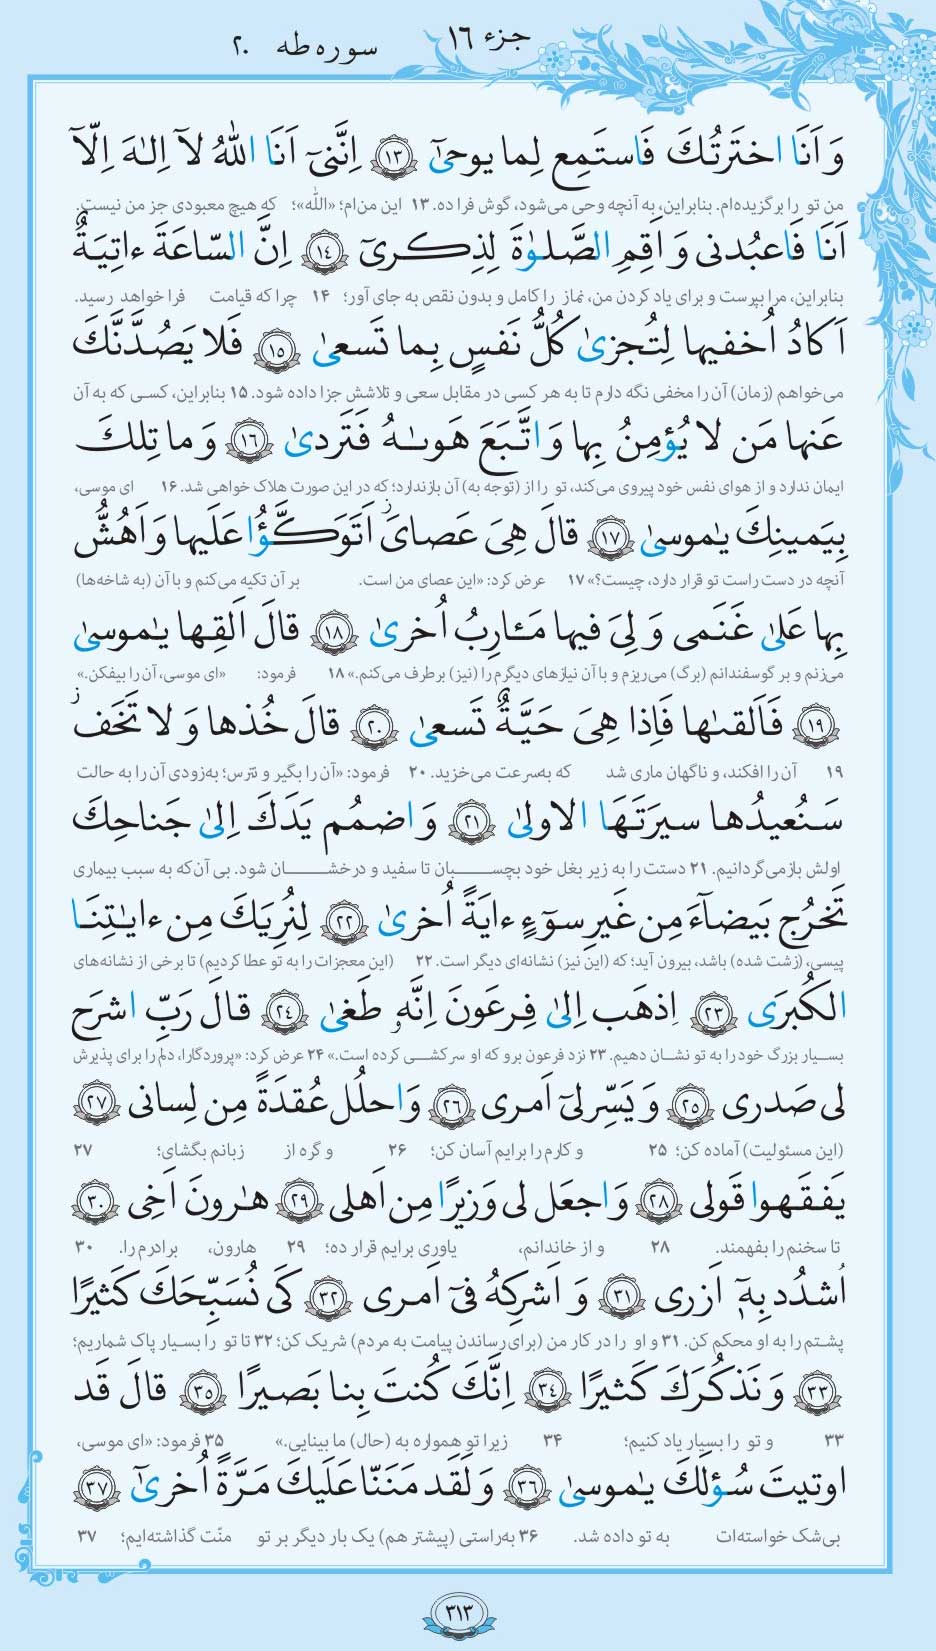 جزء ۱۶
سوره طه ۲۰
وَ اَنَا اختَرتُكَ فَاستَمِع لِما يوحىٰٓ ﴿۱۳﴾ اِنَّنىٓ اَنَا اللّٰهُ لآ اِلـٰهَ اِلّآ
من تو را برگزیده‌ام. بنابراین، به آنچه وحی می‌شود، گوش فرا ده. ۱۳ این من‌ام؛ «الله»؛ که هیچ معبودی جز من نیست.
اَنَا فَاعبُدنى وَ اَقِمِ الصَّلوٰةَ لِذِكرىٓ ﴿۱۴﴾ اِنَّ السّاعَةَ ءاتِيَةٌ
بنابراین، مرا بپرست و برای یاد کردن من، نماز را کامل و بدون نقص به جای آور؛ ۱۴ چرا که قیامت فرا خواهد رسید.
اَكادُ اُخفيها لِتُجزىٰ كُلُّ نَفسٍ بِما تَسعىٰ ﴿۱۵﴾ فَلا يَصُدَّنَّكَ
می‌خواهم (زمان) آن را مخفی نگه دارم تا به هر کسی در مقابل سعی و تلاشش جزا داده شود. ۱۵ بنابراین، کسی که به آن
عَنها مَن لا يُؤمِنُ بِها وَ اتَّبَعَ هَوىٰهُ فَتَردىٰ ﴿۱۶﴾ وَ ما تِلكَ
ایمان ندارد و از هوای نفس خود پیروی می‌کند، تو را از (توجه به) آن بازندارد؛ که در این صورت هلاک خواهی شد. ۱۶ ای موسی،
بِيَمينِكَ يـٰموسىٰ ﴿۱۷﴾ قالَ هِىَ عَصاىَ اَتَوَكَّؤُا عَلَيها وَ اَهُشُّ
آنچه در دست راست تو قرار دارد، چیست؟» ۱۷ عرض کرد: «این عصای من است. بر آن تکیه می‌کنم و با آن (به شاخه‌ها)
بِها عَلىٰ غَنَمى وَ لِىَ فيها مَـٔارِبُ اُخرىٰ ﴿۱۸﴾ قالَ اَلقِها يـٰموسىٰ
می‌زنم و بر گوسفندانم (برگ) می‌ریزم و با آن نیازهای دیگرم را (نیز) برطرف می‌کنم.» ۱۸ فرمود: «ای موسی، آن را بیفکن.»
﴿۱۹﴾ فَاَلقىٰها فَاِذا هِىَ حَيَّةٌ تَسعىٰ ﴿۲۰﴾ قالَ خُذها وَ لا تَخَف
۱۹ آن را افکند، و ناگهان ماری شد که به‌سرعت می‌خزید. ۲۰ فرمود: «آن را بگیر و نترس؛ به‌زودی آن را به حالت
سَنُعيدُها سيرَتَهَا الاولىٰ ﴿۲۱﴾ وَ اضمُم يَدَكَ اِلىٰ جَناحِكَ
اولش بازمی‌گردانیم. ۲۱ دستت را به زیر بغل خود بچسبان تا سفید و درخشان شود. بی آن‌که به سبب بیماری
تَخرُج بَيضآءَ مِن غَيرِ سوٓءٍ ءايَةً اُخرىٰ ﴿۲۲﴾ لِنُرِيَكَ مِن ءايـٰتِنَا
پیسی، (زشت شده) باشد، بیرون آید؛ که (این نیز) نشانه‌ای دیگر است. ۲۲ (این معجزات را به تو عطا کردیم) تا برخی از نشانه‌های
الكُبرَى ﴿۲۳﴾ اِذهَب اِلىٰ فِرعَونَ اِنَّهٗ طَغىٰ ﴿۲۴﴾ قالَ رَبِّ اشرَح
بسیار بزرگ خود را به تو نشان دهیم. ۲۳ نزد فرعون برو که او سرکشی کرده است.» ۲۴ عرض کرد: «پروردگارا، دلم را برای پذیرش
لى صَدرى ﴿۲۵﴾ وَ يَسِّر لىٓ اَمرى ﴿۲۶﴾ وَ احلُل عُقدَةً مِن لِسانى ﴿۲۷﴾
(این مسئولیت) آماده کن؛ ۲۵ و کارم را برایم آسان کن؛ ۲۶ و گره از زبانم بگشای؛ ۲۷
يَفقَهوا قَولى ﴿۲۸﴾ وَ اجعَل لى وَزيرًا مِن اَهلى ﴿۲۹﴾ هـٰرونَ اَخِى ﴿۳۰﴾
تا سخنم را بفهمند. ۲۸ و از خاندانم، یاوری برایم قرار ده؛ ۲۹ هارون، برادرم را. ۳۰
اُشدُد بِهٖٓ اَزرى ﴿۳۱﴾ وَ اَشرِكهُ فىٓ اَمرى ﴿۳۲﴾ كَى نُسَبِّحَكَ كَثيرًا
پشتم را به او محکم کن. ۳۱ و او را در کار من (برای رساندن پیامت به مردم) شریک کن؛ ۳۲ تا تو را بسیار پاک شماریم؛
﴿۳۳﴾ وَ نَذكُرَكَ كَثيرًا ﴿۳۴﴾ اِنَّكَ كُنتَ بِنا بَصيرًا ﴿۳۵﴾ قالَ قَد
۳۳ و تو را بسیار یاد کنیم؛ ۳۴ زیرا تو همواره به (حال) ما بینایی.» ۳۵ فرمود: «ای موسی،
اوتيتَ سُؤلَكَ يـٰموسىٰ ﴿۳۶﴾ وَ لَقَد مَنَنّا عَلَيكَ مَرَّةً اُخرىٰٓ ﴿۳۷﴾
بی‌شک خواسته‌ات به تو داده شد. ۳۶ به‌راستی (پیشتر هم) یک بار دیگر بر تو منّت گذاشته‌ایم؛ ۳۷
۳۱۳